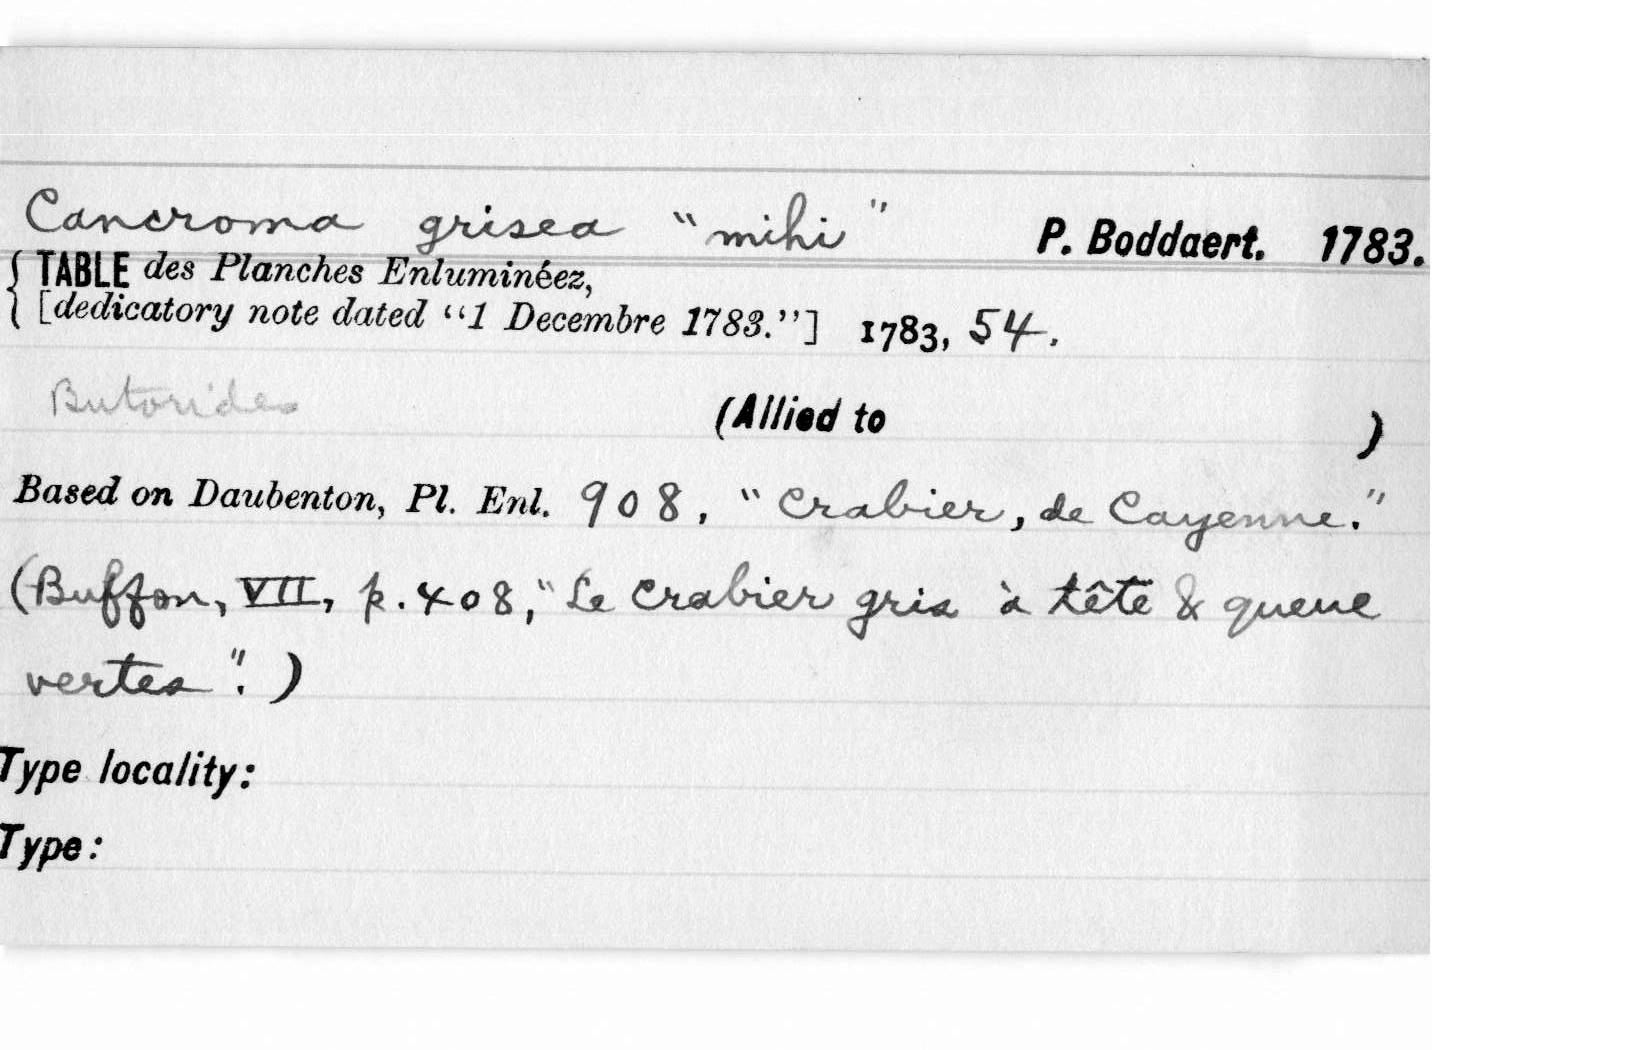 Cancroma grisea "mihi" P. Boddaert. 1783.
{ TABLE des Planches Enluminéez,
{ [dedicatory note dated "1 Decembre 1783."] 1783, 54.
Butorides (Allied to )
Based on Daubenton, Pl. Enl. 908, "Crabier, de Cayenne."
(Buffon, VII, p. 408, "Le Crabier gris à tête & queue
vertes". )
Type locality:
Type: